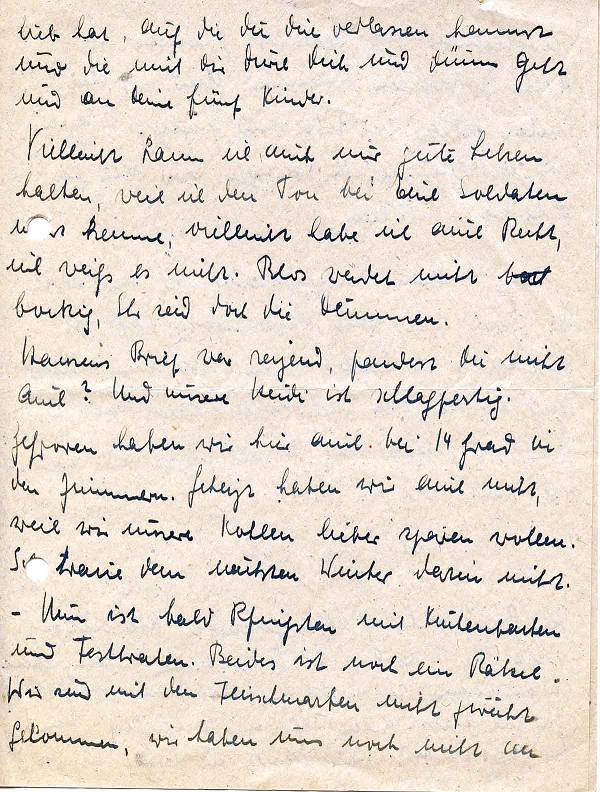 lieb hat, auf die du dich verlassen kannst
und die mit dir durch dick und dünn geht
und an deine fünf Kinder.
Vielleicht kann ich mich nur gute Leben
halten, weil ich den Ton bei Euch Soldaten
nicht kenne, vielleicht habe ich auch Recht,
ich weiß es nicht. Blos werdet nicht
bockig, Ihr seid doch die Dümmen.
Hansens Brief war reizend, fandest du nicht
auch? Und unsere Heidi ist schlagfertig.
Gefroren haben wir hier auch. bei 14 Grad in
den Zimmern. Geheizt haben wir auch nicht,
weil wir unsere Kohlen lieber sparen wollen.
Ich traue dem nächsten Winter darin nicht.
- Nun ist bald Pfingsten mit Kuchenbacken
und Festbraten. Beides ist noch ein Rätsel.
Wir sind mit den Fleischmarken nicht
gekommen, wir haben uns noch nicht an